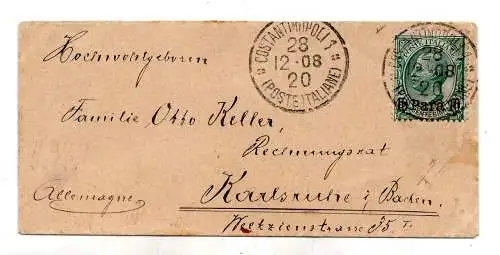 COSTANTINOPOLI 1
28
12-08
20
(POSTE ITALIANE)
28
20
10 Para 10
Hochwohlgeboren
Familie Otto Keller,
Rechnungsrat
Allemagne
Karlsruhe i/ Baden.
Weltzienstrasse 35 I.